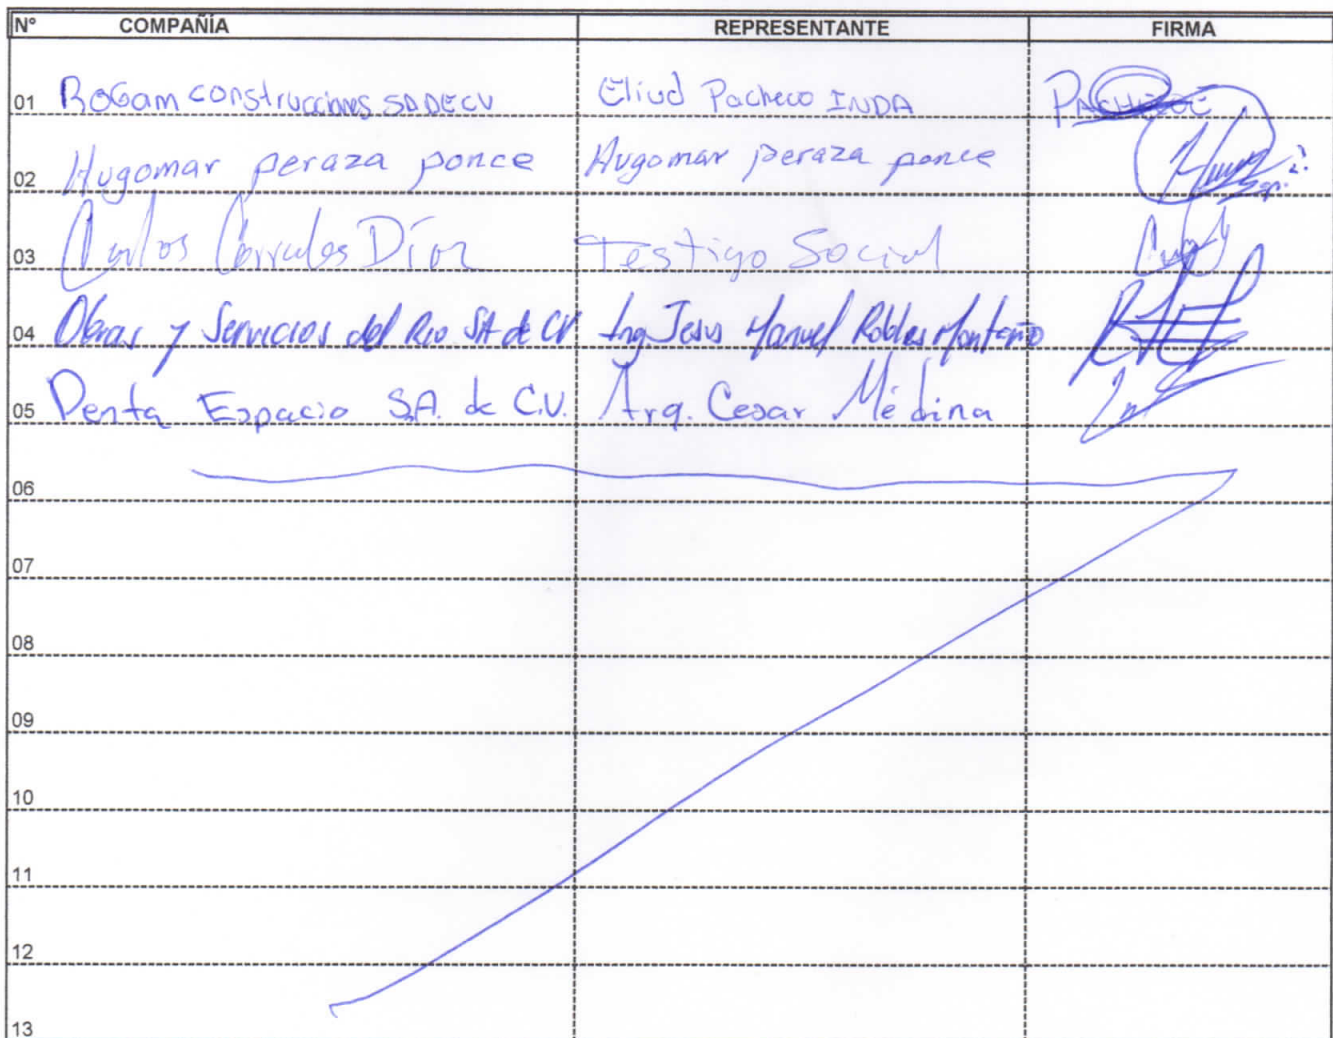 N° COMPAÑÍA REPRESENTANTE FIRMA
01 ROGam construcciones SADECV Eliud Pacheco INDA PACHECO
02 Hugomar peraza ponce Hugomar peraza ponce
03 Carlos Corrales Díaz Testigo Social
04 Obras y Servicios del Rio SA de CV Ing Jesus Manuel Robles Montaño
05 Penta Espacio S.A. de C.V. Arq. Cesar Médina
06
07
08
09
10
11
12
13